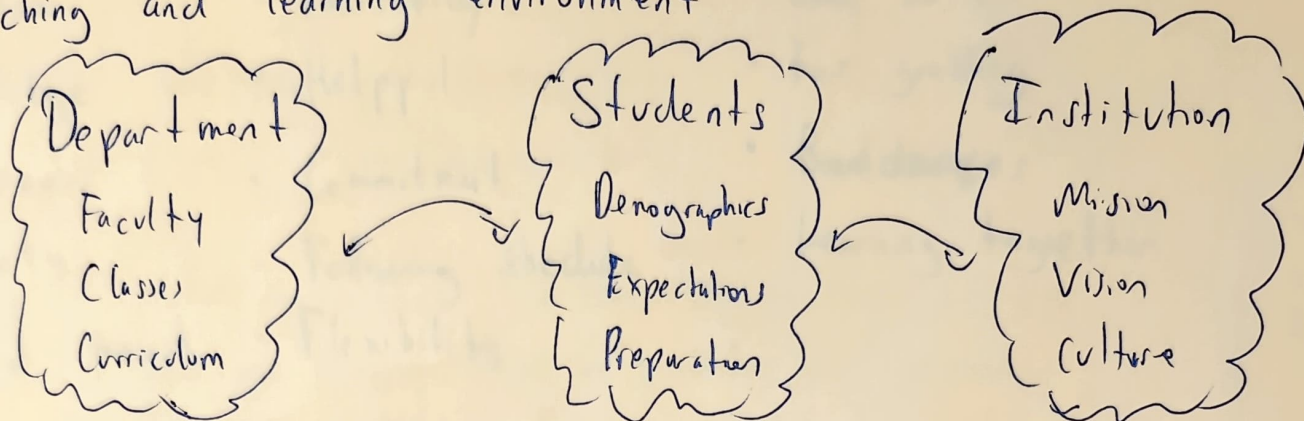 ching and learning environment
Department
Faculty
Classes
Curriculum
Students
Demographics
Expectations
Preparation
Institution
Mission
Vision
Culture